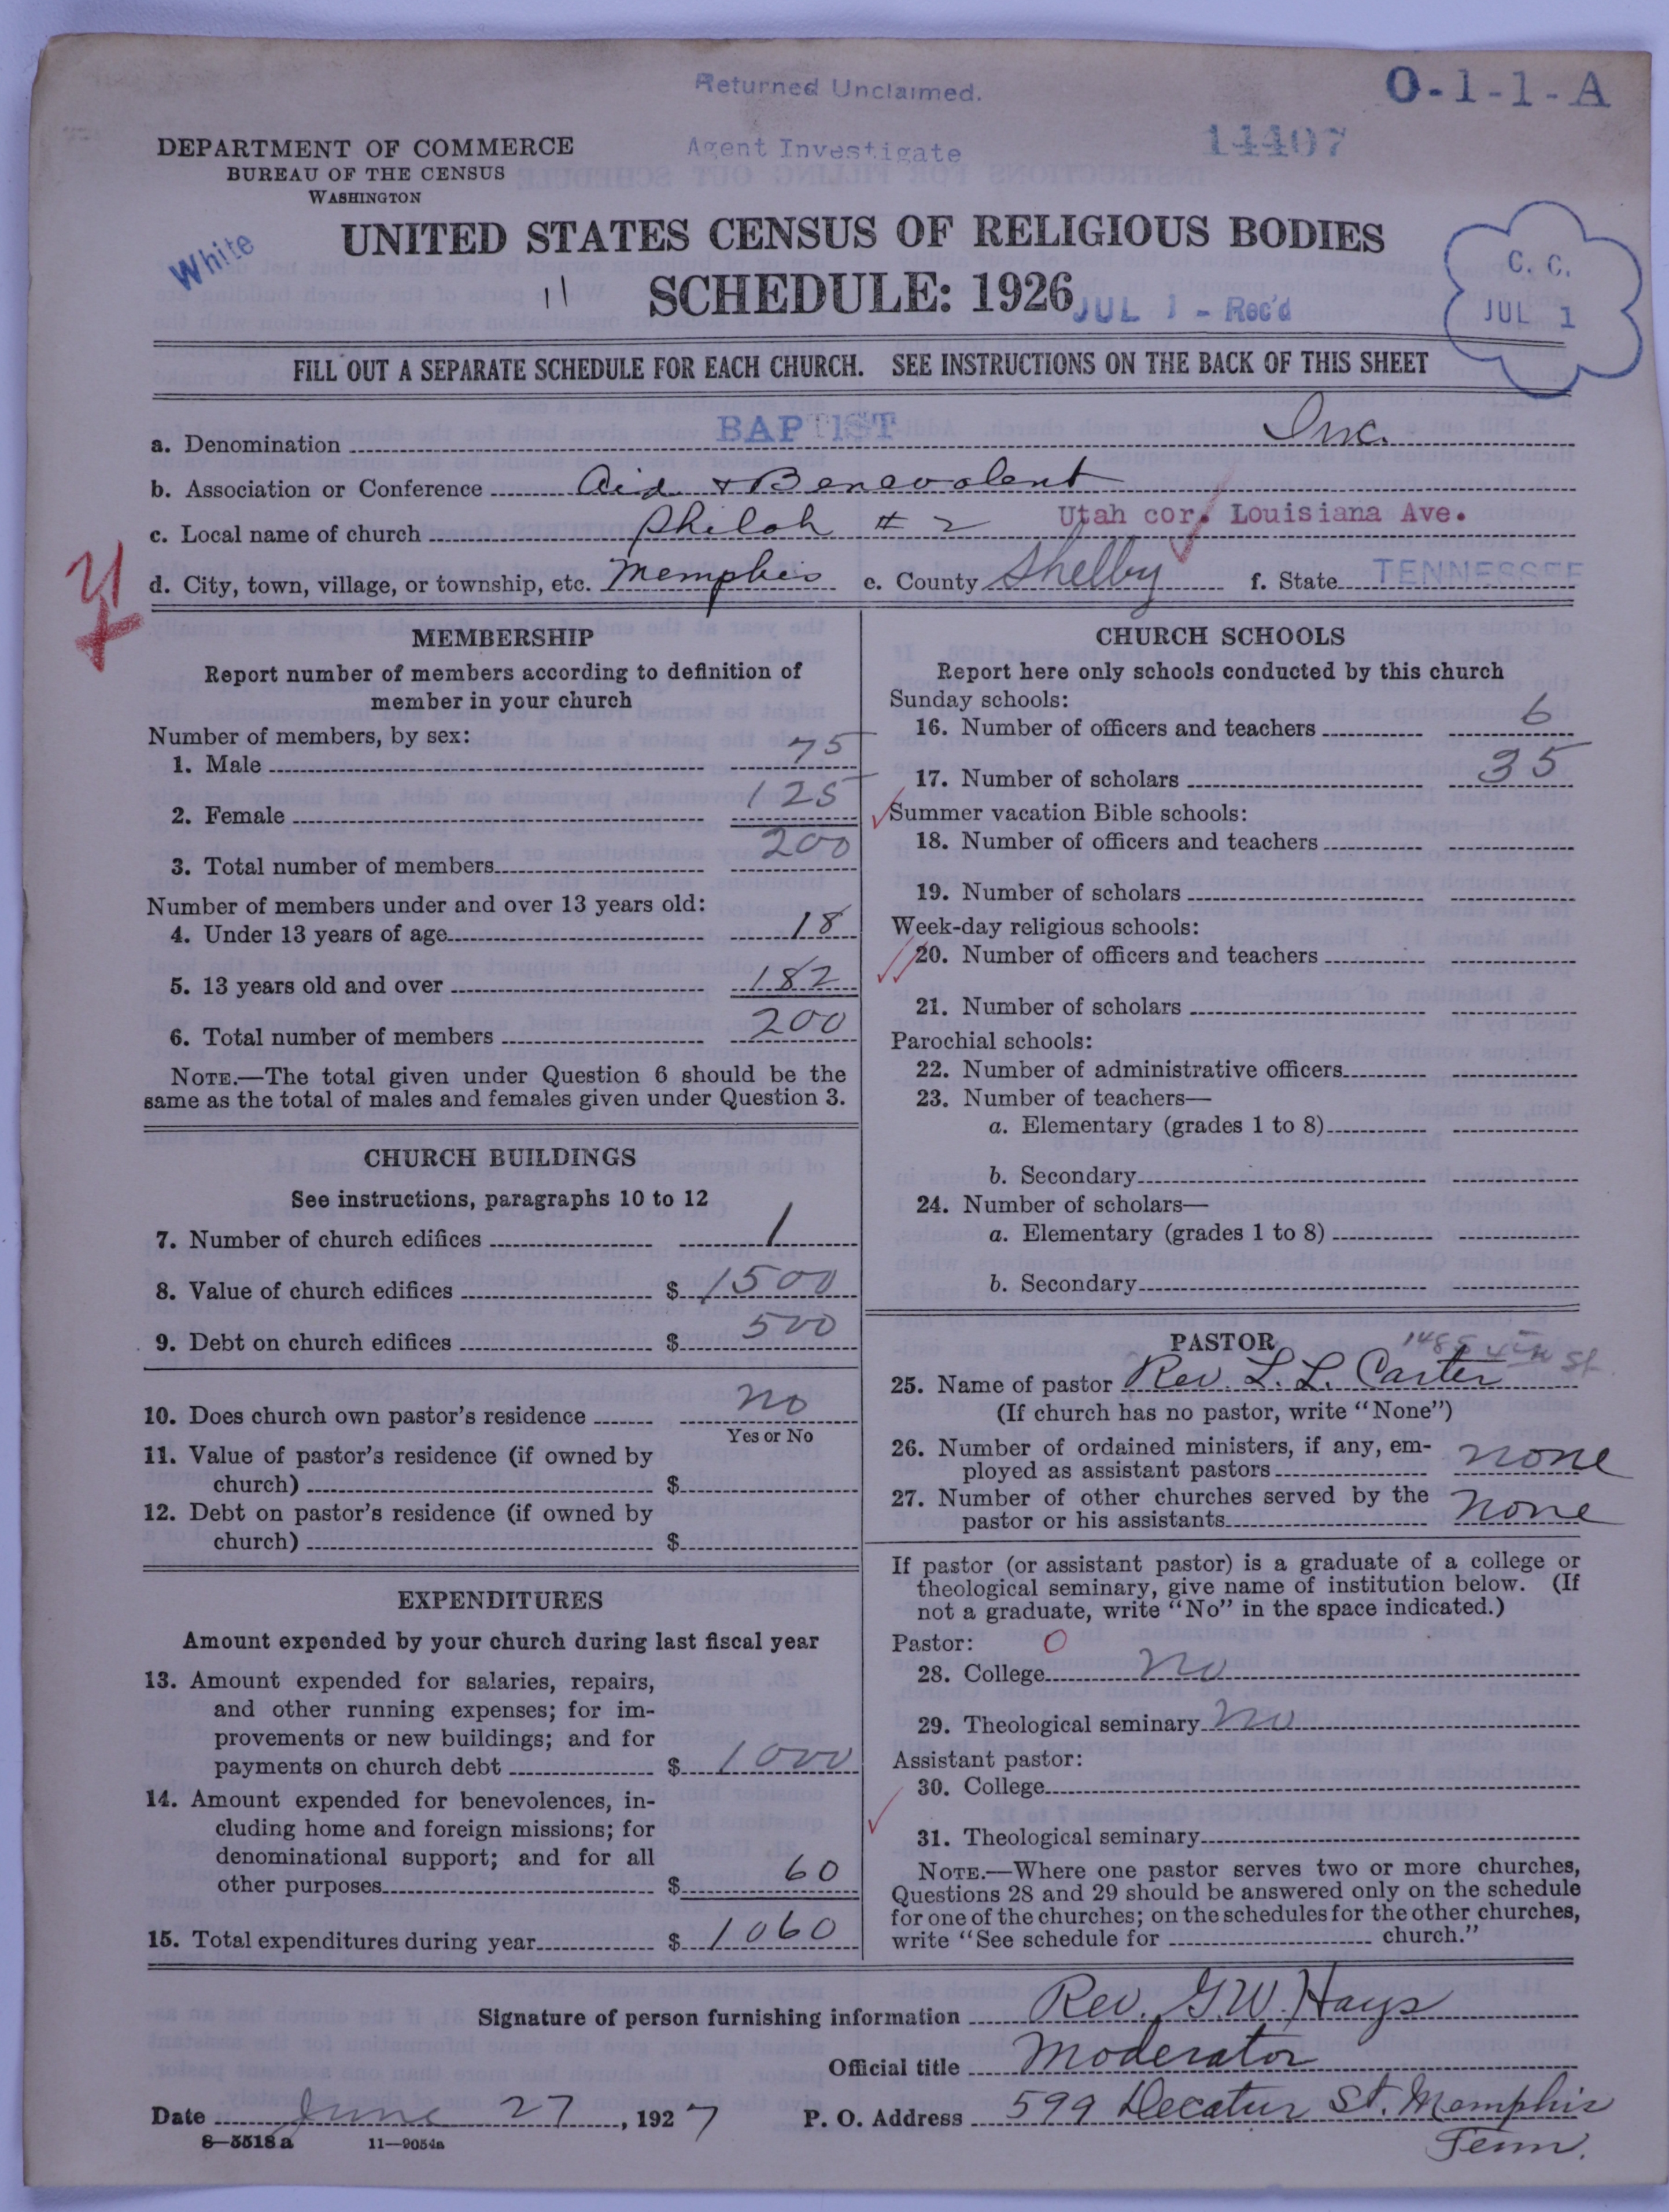 Returned Unclaimed.
O-1-1-A
Agent Investigate
14407
DEPARTMENT OF COMMERCE
BUREAU OF THE CENSUS
WASHINGTON
White
UNITED STATES CENSUS OF RELIGIOUS BODIES
11
SCHEDULE: 1926
JUL 1 - Rec'd
C. C.
JUL 1
FILL OUT A SEPARATE SCHEDULE FOR EACH CHURCH. SEE INSTRUCTIONS ON THE BACK OF THIS SHEET
a. Denomination BAPTIST Inc.
b. Association or Conference Aid & Benevolent
c. Local name of church Shiloh # 2 Utah cor. Louisiana Ave.
d. City, town, village, or township, etc. Memphis e. County Shelby f. State TENNESSEE
MEMBERSHIP
Report number of members according to definition of
member in your church
Number of members, by sex:
1. Male 75
2. Female 125
3. Total number of members 200
Number of members under and over 13 years old:
4. Under 13 years of age 18
5. 13 years old and over 182
6. Total number of members 200
NOTE.—The total given under Question 6 should be the
same as the total of males and females given under Question 3.
CHURCH BUILDINGS
See instructions, paragraphs 10 to 12
7. Number of church edifices 1
8. Value of church edifices $ 1500
9. Debt on church edifices $ 500
10. Does church own pastor's residence No
Yes or No
11. Value of pastor's residence (if owned by
church) $
12. Debt on pastor's residence (if owned by
church) $
EXPENDITURES
Amount expended by your church during last fiscal year
13. Amount expended for salaries, repairs,
and other running expenses; for im-
provements or new buildings; and for
payments on church debt $ 1000
14. Amount expended for benevolences, in-
cluding home and foreign missions; for
denominational support; and for all
other purposes $ 60
15. Total expenditures during year $ 1060
CHURCH SCHOOLS
Report here only schools conducted by this church
Sunday schools:
16. Number of officers and teachers 6
17. Number of scholars 35
Summer vacation Bible schools:
18. Number of officers and teachers
19. Number of scholars
Week-day religious schools:
20. Number of officers and teachers
21. Number of scholars
Parochial schools:
22. Number of administrative officers
23. Number of teachers—
a. Elementary (grades 1 to 8)
b. Secondary
24. Number of scholars—
a. Elementary (grades 1 to 8)
b. Secondary
PASTOR
25. Name of pastor Rev. L. L. Carter
(If church has no pastor, write "None")
26. Number of ordained ministers, if any, em-
ployed as assistant pastors none
27. Number of other churches served by the
pastor or his assistants none
If pastor (or assistant pastor) is a graduate of a college or
theological seminary, give name of institution below. (If
not a graduate, write "No" in the space indicated.)
Pastor: 0
28. College no
29. Theological seminary no
Assistant pastor:
30. College
31. Theological seminary
NOTE.—Where one pastor serves two or more churches,
Questions 28 and 29 should be answered only on the schedule
for one of the churches; on the schedules for the other churches,
write "See schedule for church."
Signature of person furnishing information Rev. G.W. Hays
Official title Moderator
Date June 27, 1927 P. O. Address 599 Decatur St. Memphis
Tenn.
8—5518a 11—9054a